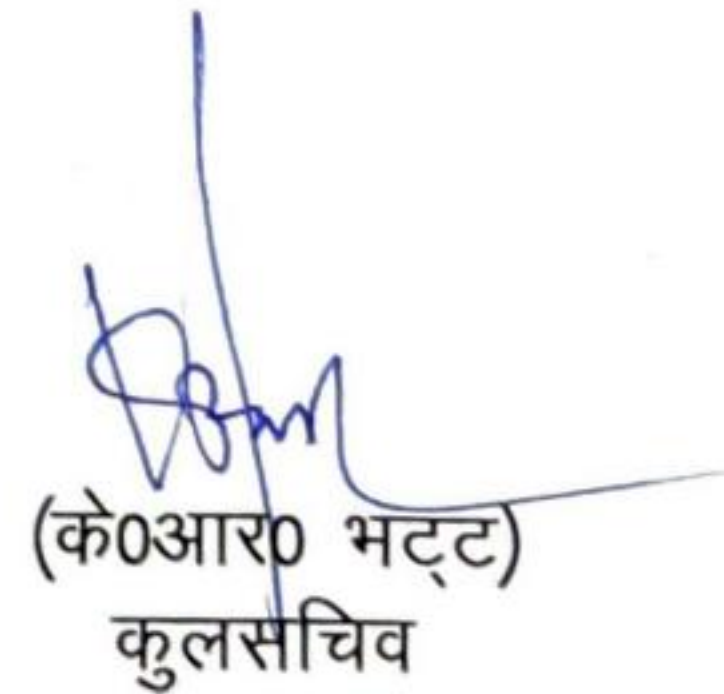 (के0आर0 भट्ट)
कुलसचिव